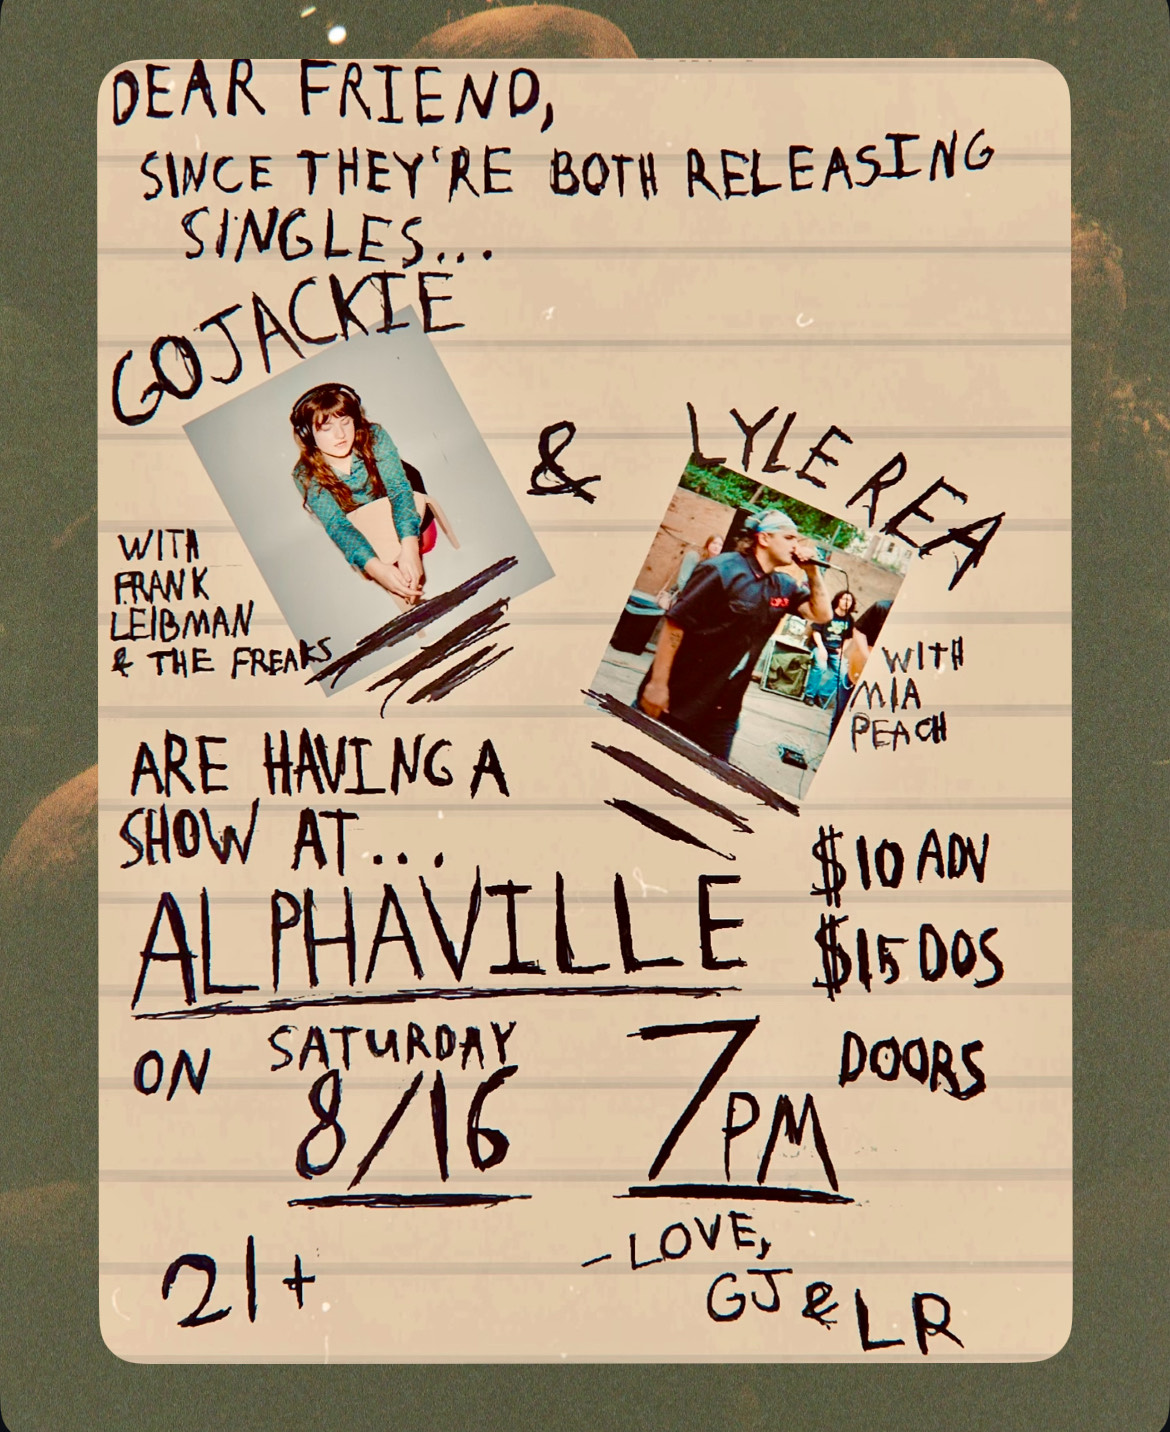 DEAR FRIEND,
SINCE THEY'RE BOTH RELEASING
SINGLES...
GOJACKIE
&
LYLE REA
WITH
FRANK
LEIBMAN
& THE FREAKS
WITH
MIA
PEACH
ARE HAVING A
SHOW AT...
ALPHAVILLE
$10 ADV
$15 DOS
ON SATURDAY
8/16
7PM
DOORS
21+
- LOVE,
GJ & LR